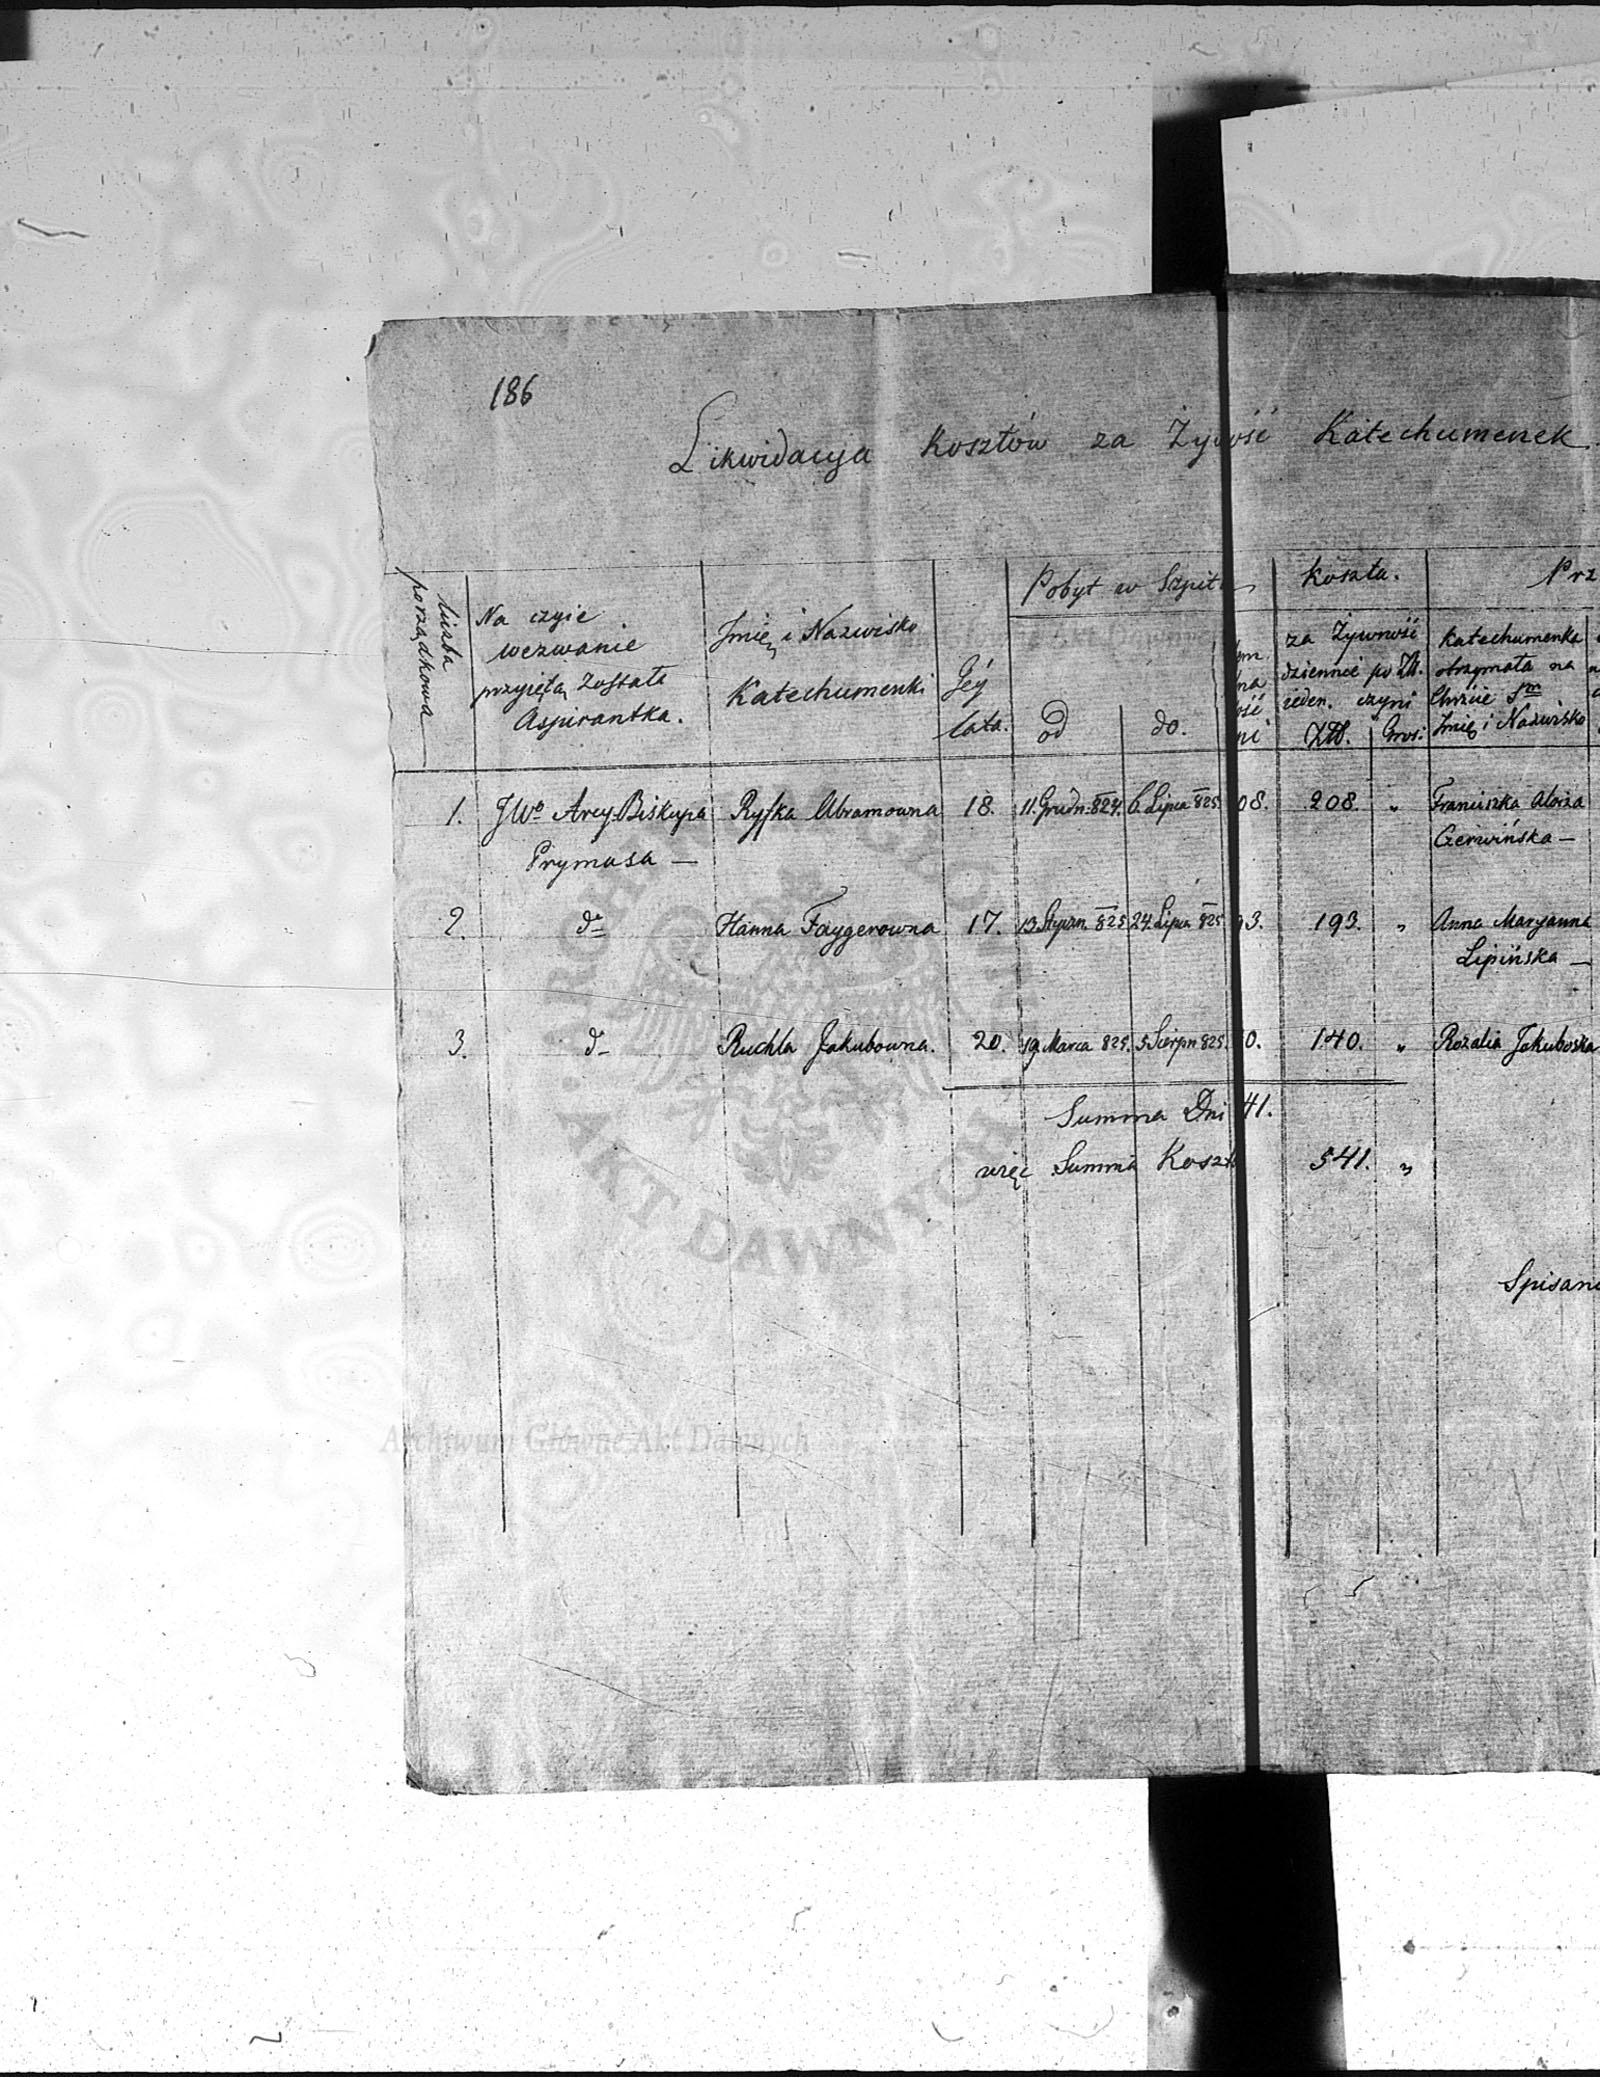 186
Likwidacyja Kosztów za Żywność Katechumenek
liczba porządkowa
Na czyie wezwanie przyiętą została Aspirantka.
Imię i Nazwisko Katechumenki
Jéy lata.
Pobyt w Szpit
od
do.
Koszta.
za Żywność
dziennie po Zł.
ieden. czyni
Zł. Gros:
Prz
Katechumenka
otrzymała na
Chrzcie Sm
Imię i Nazwisko
1. JWo Arcy-Biskupa Ryfka Abramowna 18. 11. Grudn: 824. 6. Lipca 825. 08. 208. " Franciszka Aloiza
Prymasa — Gerwińska —
2. do Hanna Faygerowna 17. 13. Styczn. 825 24. Lipca 825 93. 193. " Anna Maryanna
Lipińska —
3. do Ruchla Jakubowna. 20. 19 Marca 825. 5 Sierpn 825. 0. 140. " Rozalia Jakuboska
Summa Dni 41.
więc Summa Koszt 541. "
Spisano
ARCHIWUM GŁÓWNE AKT DAWNYCH
Archiwum Główne Akt Dawnych